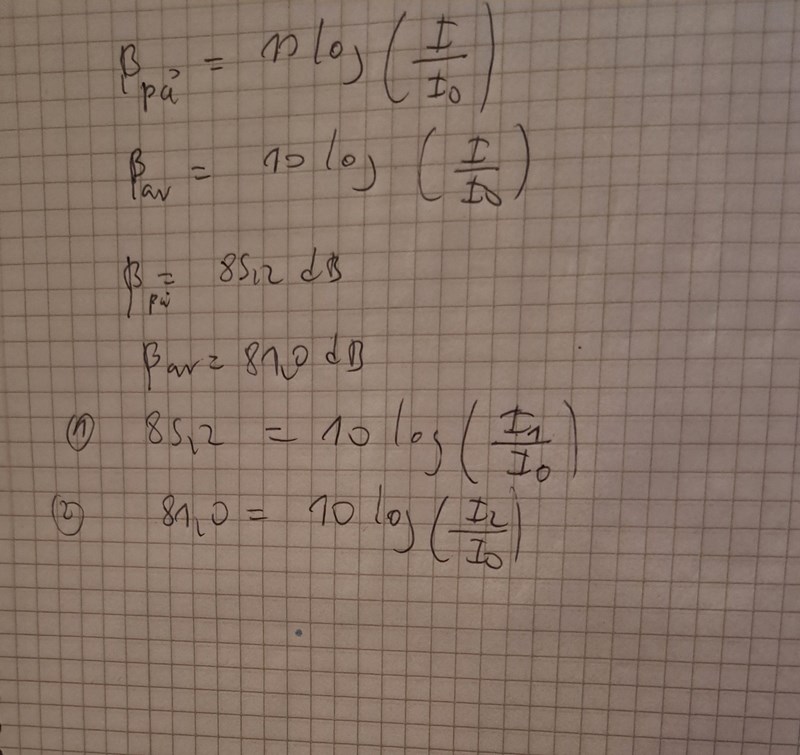 β_på = 10 log (I/I₀)
β_av = 10 log (I/I₀)
β_på = 85,2 dB
β_av = 81,0 dB
① 85,2 = 10 log (I₁/I₀)
② 81,0 = 10 log (I₂/I₀)